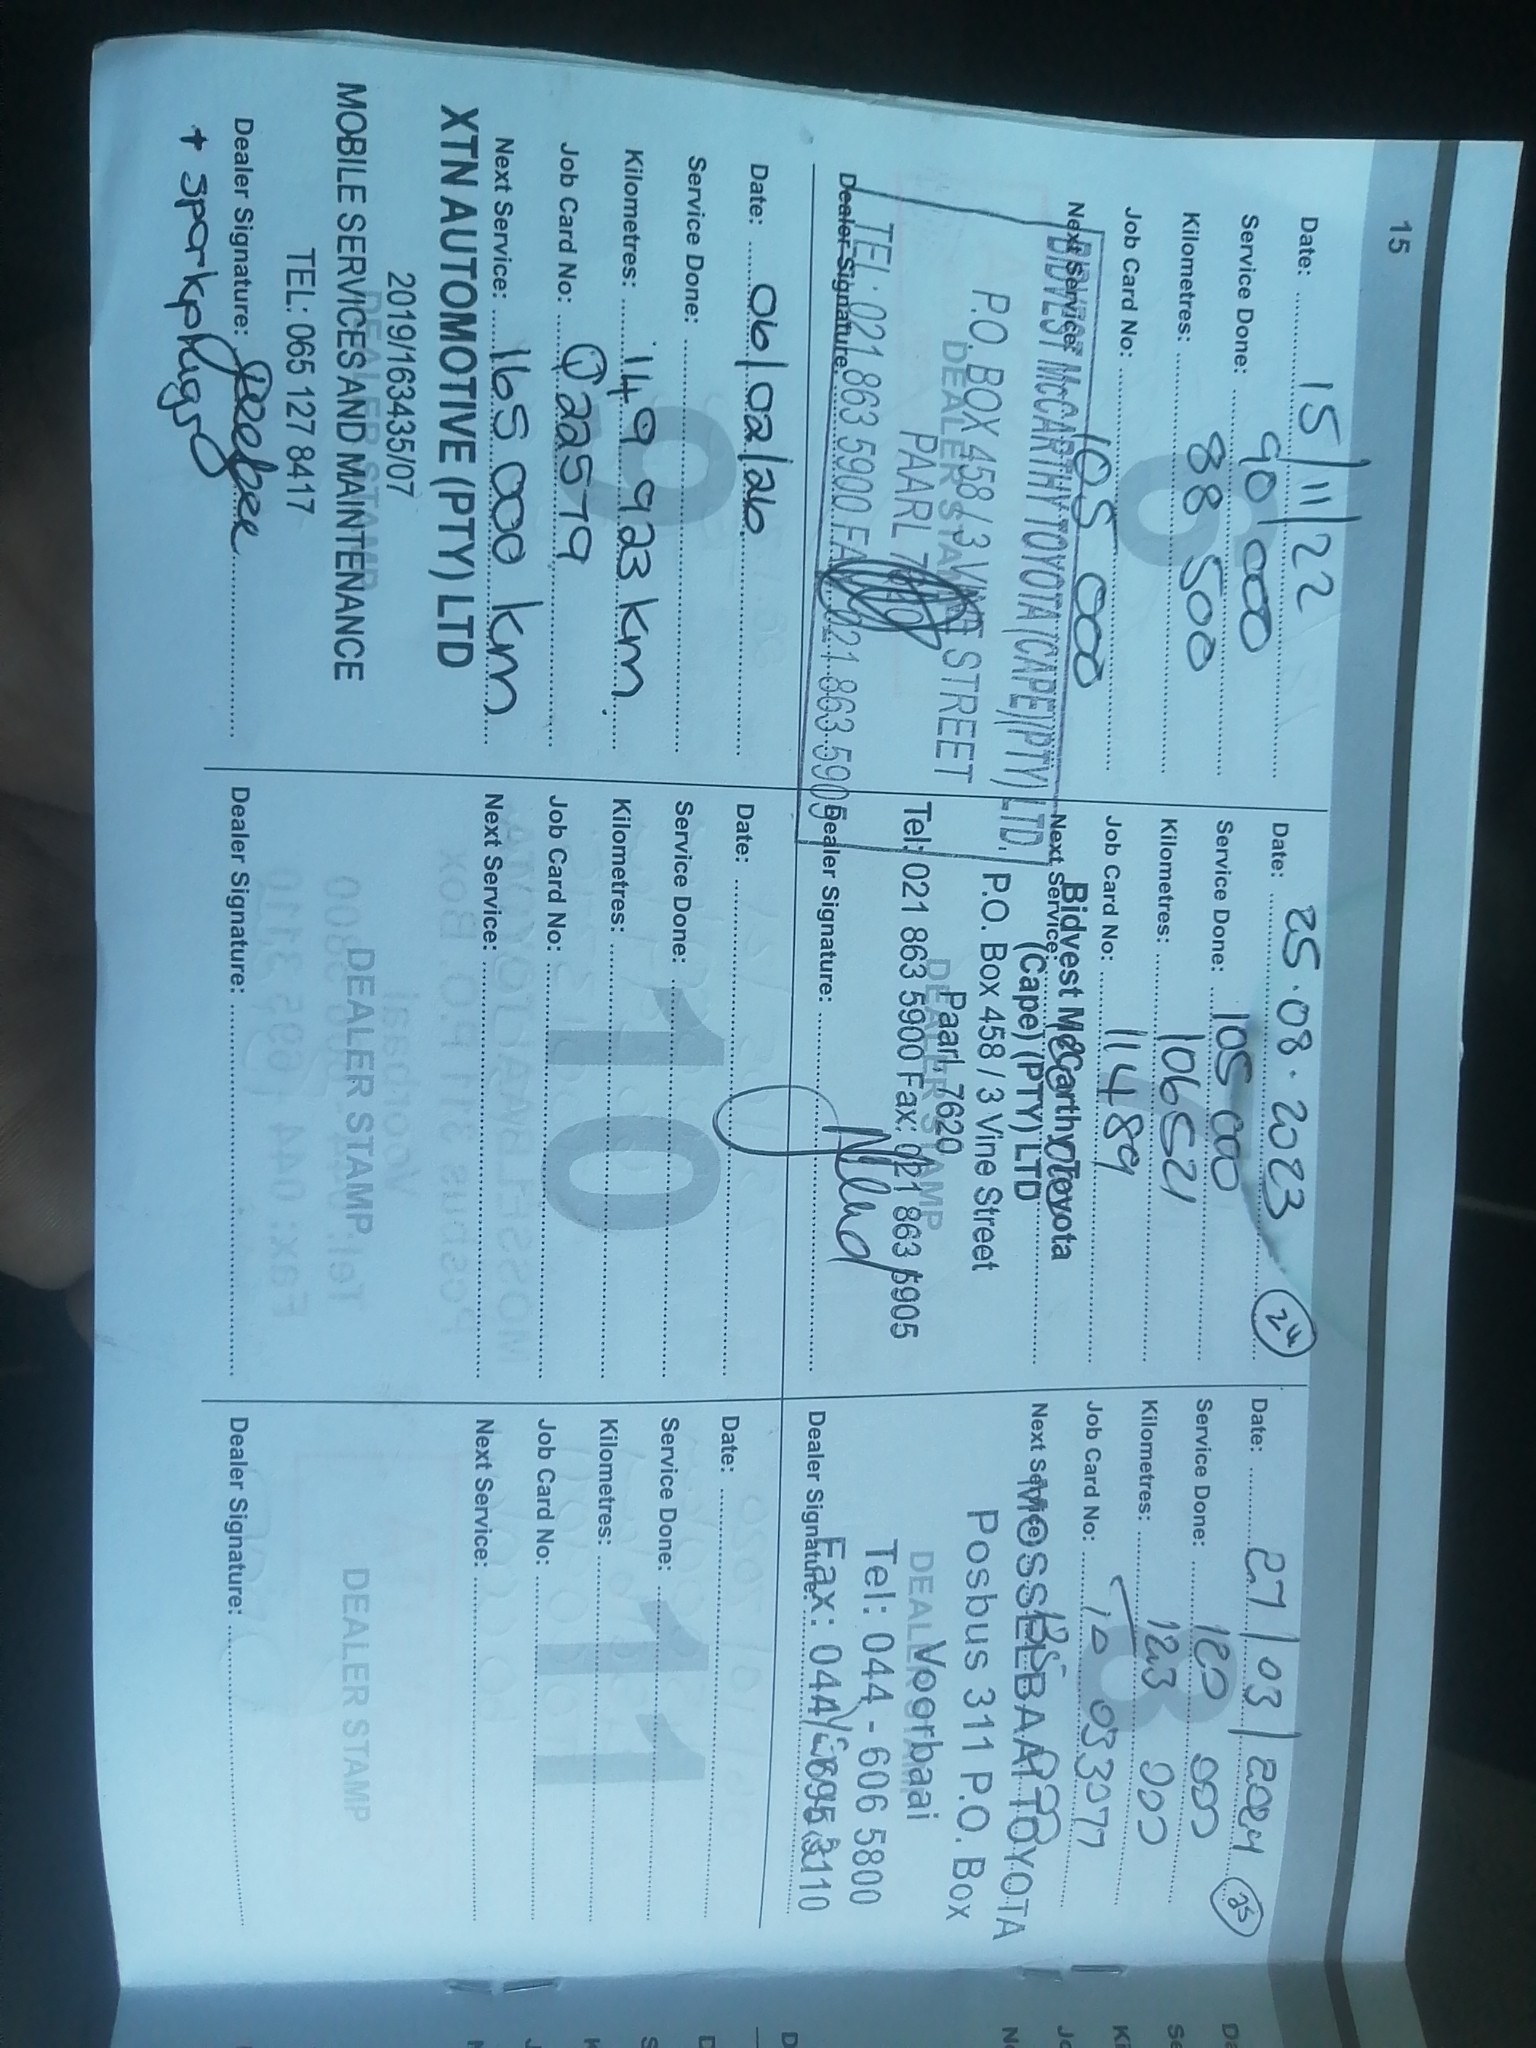 15
Date: 15/11/22
Service Done: 90 000
Kilometres: 88 500
6
Job Card No:
Next Service: 105 000
BIDVEST McCARTHY TOYOTA (CAPE) (PTY) LTD.
P.O. BOX 458 / 3 VINE STREET
DEALER STAMP
PAARL 7620
TEL: 021 863 5900 FAX 021 863 5905
Dealer Signature:
Date: 25.08.2023 24
Service Done: 105 000
Kilometres: 106521
7
Job Card No: 11489
Next Service:
Bidvest McCarthy Toyota
(Cape) (PTY) LTD
P.O. Box 458 / 3 Vine Street
DEALER STAMP
Paarl 7620
Tel: 021 863 5900 Fax: 021 863 5905
Dealer Signature:
Date: 27/03/2024 25
Service Done: 120 000
Kilometres: 123 000
8
Job Card No: 10 033077
Next Service: 135 000
MOSSELBAAI TOYOTA
Posbus 311 P.O. Box
DEALER STAMP
Voorbaai
Tel: 044 - 606 5800
Fax: 044 - 695 3110
Dealer Signature:
Date: 06/02/26
Service Done:
9
Kilometres: 149 923 km.
Job Card No: 22579
Next Service: 165 000 km
XTN AUTOMOTIVE (PTY) LTD
2019/163435/07
DEALER STAMP
MOBILE SERVICES AND MAINTENANCE
TEL: 065 127 8417
Dealer Signature:
+ sparkplugs
Date:
Service Done:
10
Kilometres:
Job Card No:
Next Service:
DEALER STAMP
Dealer Signature:
Date:
Service Done:
11
Kilometres:
Job Card No:
Next Service:
DEALER STAMP
Dealer Signature: